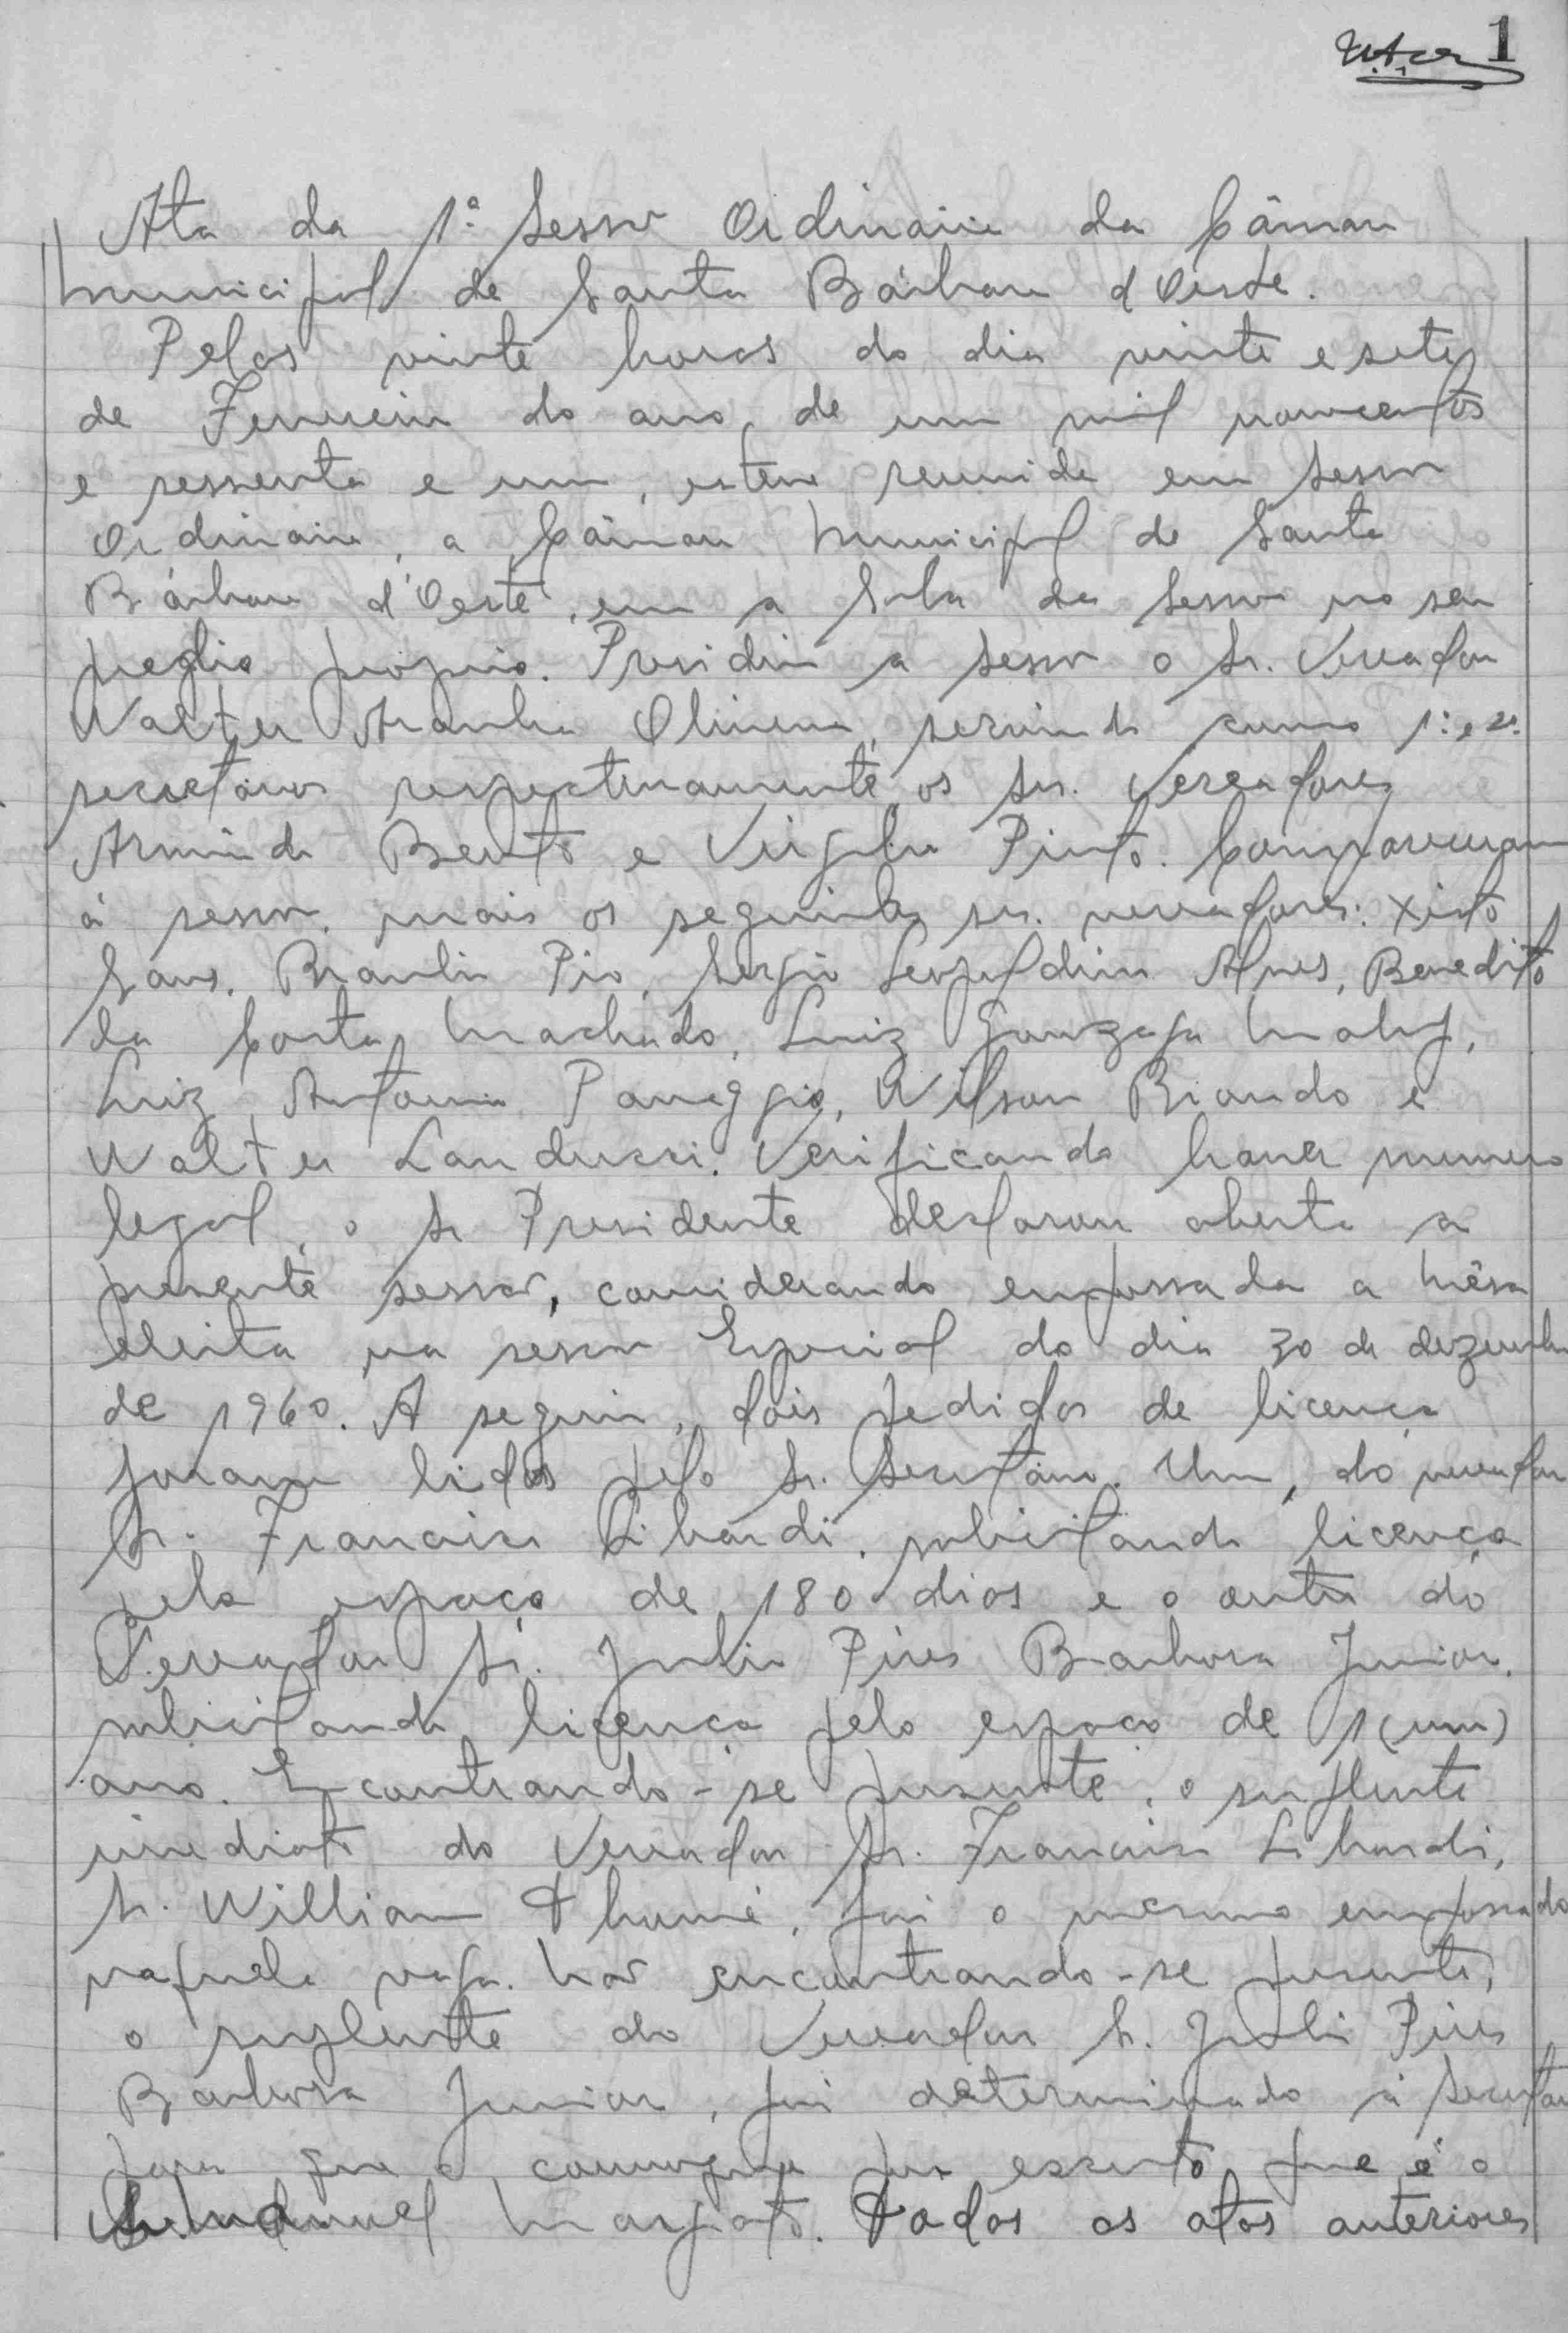 1
Ata da 1ª Sessão Ordinária da Câmara
Municipal de Santa Bárbara d'Oeste.
Pelas vinte horas do dia vinte e sete
de Fevereiro do ano, de um mil novecentos
e sessenta e um, esteve reunida em sessão
Ordinária, a Câmara Municipal de Santa
Bárbara d'Oeste, em a Sala da Sessão no seu
predio proprio. Presidiu a sessão o Sr. Vereador
Walter Aranha Oliveira, servindo como 1º e 2º
secretários respectivamente os Srs. Vereadores
Armindo Bento e Virgilio Pinto. Compareceram
á sessão, mais os seguintes srs. vereadores: Xisto
Braulio Pio, Sergio Leopoldino Alves, Benedito
da Costa Machado, Luiz Gonzaga Maluf,
Luiz Antonio Panaggio, Wilson Biondo e
Walter Landucci. Verificando haver numero
legal, o Sr Presidente declarou aberta a
presente sessão, considerando empossada a Mêsa
eleita na sessão Especial do dia 30 de dezembro
de 1960. A seguir, dois pedidos de licença
foram lidos pelo Sr. Secretário. Um, do vereador
Sr. Francisco Libardi, solicitando licença
pelo espaço de 180 dias e o outro do
Vereador Sr. Julio Pires Barbosa Junior,
solicitando licença pelo espaço de 1 (um)
ano. Encontrando-se presente, o suplente
imediato do Vereador Sr. Francisco Libardi,
Sr. William Thumé, foi o mesmo empossado
naquela vaga. Não encontrando-se presente,
o suplente do Vereador Sr. Julio Pires
Barbosa Junior, foi determinado á Secretaria
para que o convoque por escrito que é o
Manuel Margato. Todos os atos anteriores